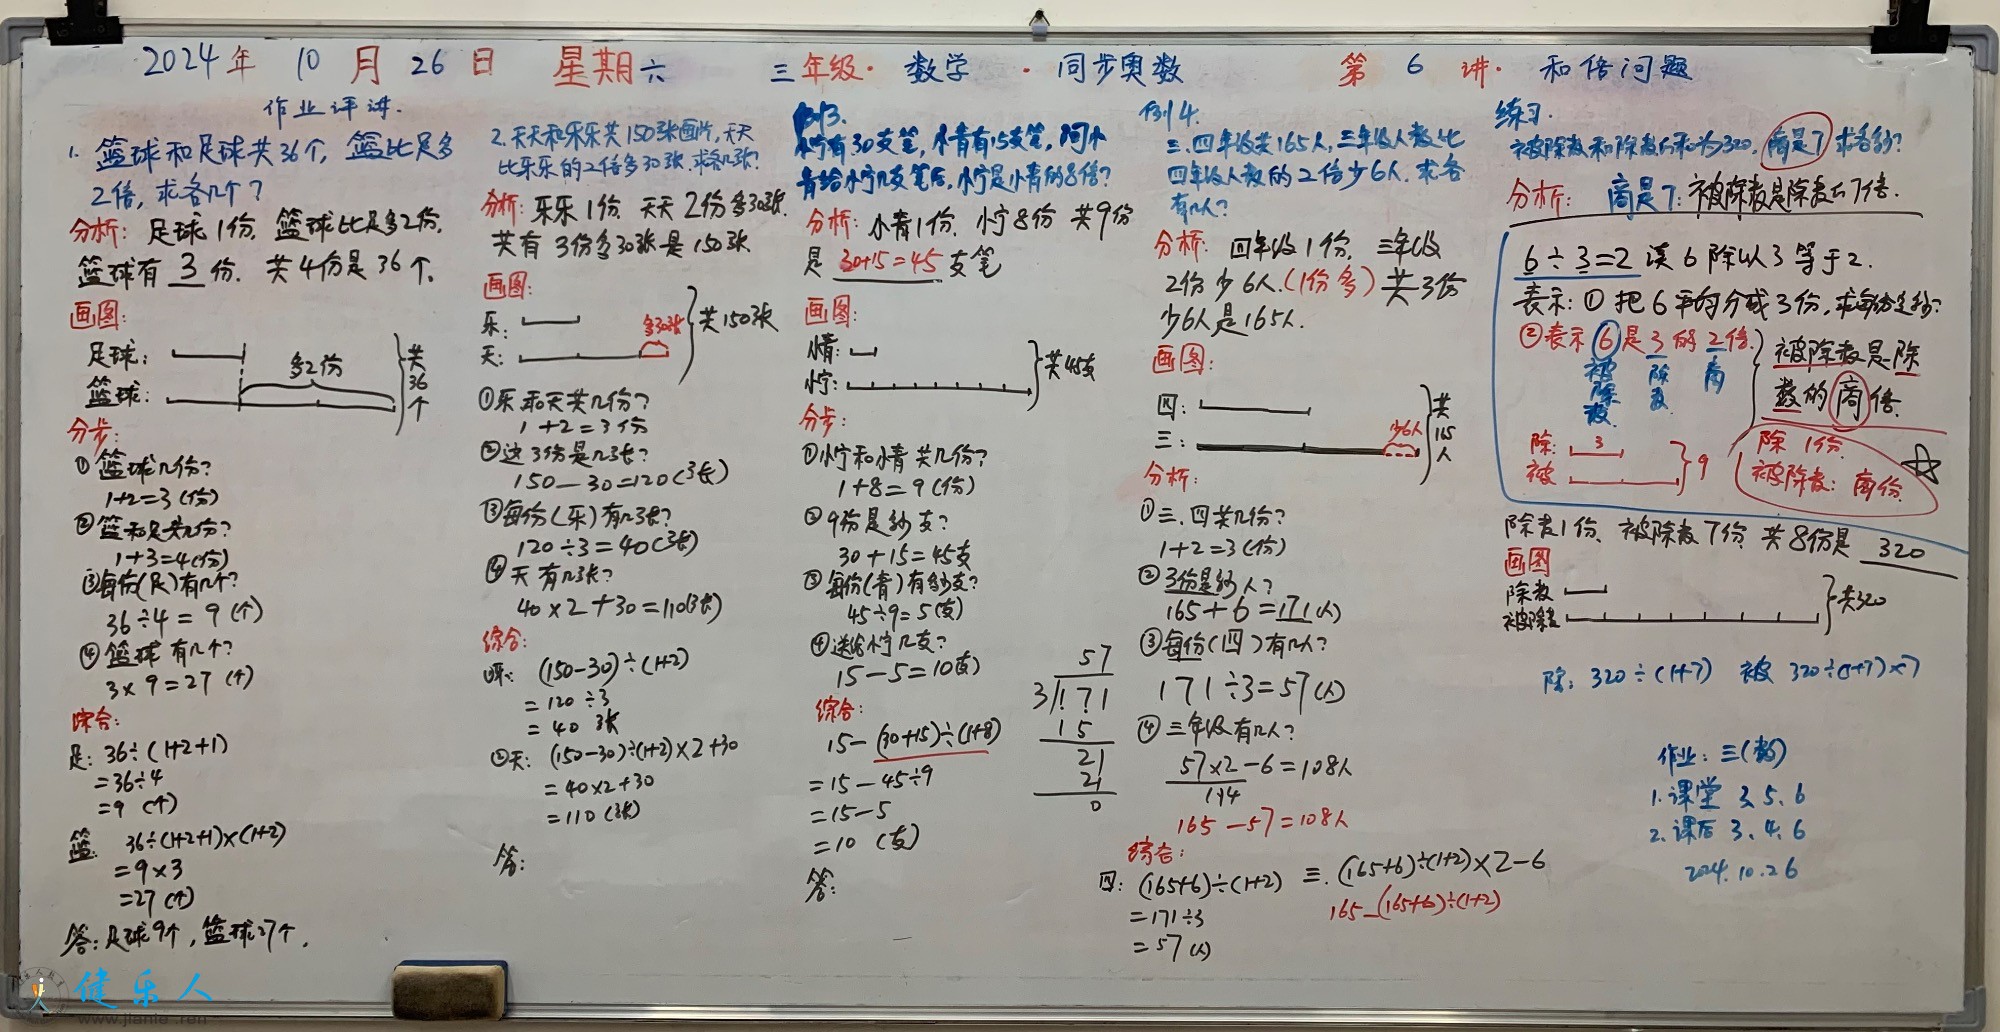 2024年 10月 26日 星期六 三年级·数学·同步奥数 第6讲·和倍问题
作业评讲.
1. 篮球和足球共36个, 篮比足多
2倍, 求各几个?
分析: 足球1份, 篮球比足多2份,
篮球有 3 份. 共4份是36个.
画图:
足球:
篮球:
多2份
共
36
个
分步:
① 篮球几份?
1+2=3(份)
② 篮和足共几份?
1+3=4(份)
③每份(足)有几个?
36÷4=9(个)
④ 篮球有几个?
3×9=27(个)
综合:
足: 36÷(1+2+1)
=36÷4
=9(个)
篮: 36÷(1+2+1)×(1+2)
=9×3
=27(个)
答: 足球9个, 篮球27个.
2. 天天和乐乐共150张画片, 天天
比乐乐的2倍多30张. 求各几张?
分析: 乐乐1份. 天天2份多30张.
共有 3份多30张是150张
画图:
乐:
天:
多30张
共150张
①乐和天共几份?
1+2=3份
②这3份是几张?
150-30=120(张)
③每份(乐)有几张?
120÷3=40(张)
④ 天有几张?
40×2+30=110(张)
综合:
(150-30)÷(1+2)
=120÷3
=40 张
②天: (150-30)÷(1+2)×2+30
=40×2+30
=110(张)
答:
例3.
小宁有30支笔, 小青有15支笔, 问小
青给小宁几支笔后, 小宁是小青的8倍?
分析: 小青1份. 小宁8份 共9份
是 30+15=45 支笔
画图:
小情:
小宁:
共45支
分步:
①小宁和小情共几份?
1+8=9(份)
② 9份是多少支?
30+15=45支
③ 每份(青)有多少支?
45÷9=5(支)
④送给小宁几支?
15-5=10(支)
综合:
15-(30+15)÷(1+8)
=15-45÷9
=15-5
=10(支)
答:
57
3 171
15
21
21
0
例4.
三.四年级共165人, 三年级人数比
四年级人数的2倍少6人. 求各
有几人?
分析: 四年级1份. 三年级
2份少6人.(1份多) 共3份
少6人是165人.
画图:
四:
三:
少6人
共
165
人
分析:
①三.四共几份?
1+2=3(份)
② 3份是多少人?
165+6=171(人)
③每份(四)有几人?
171÷3=57(人)
④ 三年级有几人?
57×2-6=108人
114
165-57=108人
综合:
四: (165+6)÷(1+2)
=171÷3
=57(人)
三. (165+6)÷(1+2)×2-6
165-(165+6)÷(1+2)
练习.
被除数和除数的和为320, 商是7 求各多少?
分析: 商是7: 被除数是除数的7倍.
6÷3=2 读6除以3等于2.
表示: ① 把6平均分成3份, 求每份是多少?
②表示 6 是 3 的 2倍.
被除数
除数
商
被除数是除
数的商倍.
除: 3
被
9
除 1份.
被除数: 商份.
除数1份、被除数7份. 共8份是 320
画图
除数
被除数
共320
除: 320÷(1+7) 被 320÷(1+7)×7
作业: 三(数)
1. 课堂 3、5、6
2. 课后 3、4、6
2024.10.26
健乐人
www.jianle.ren